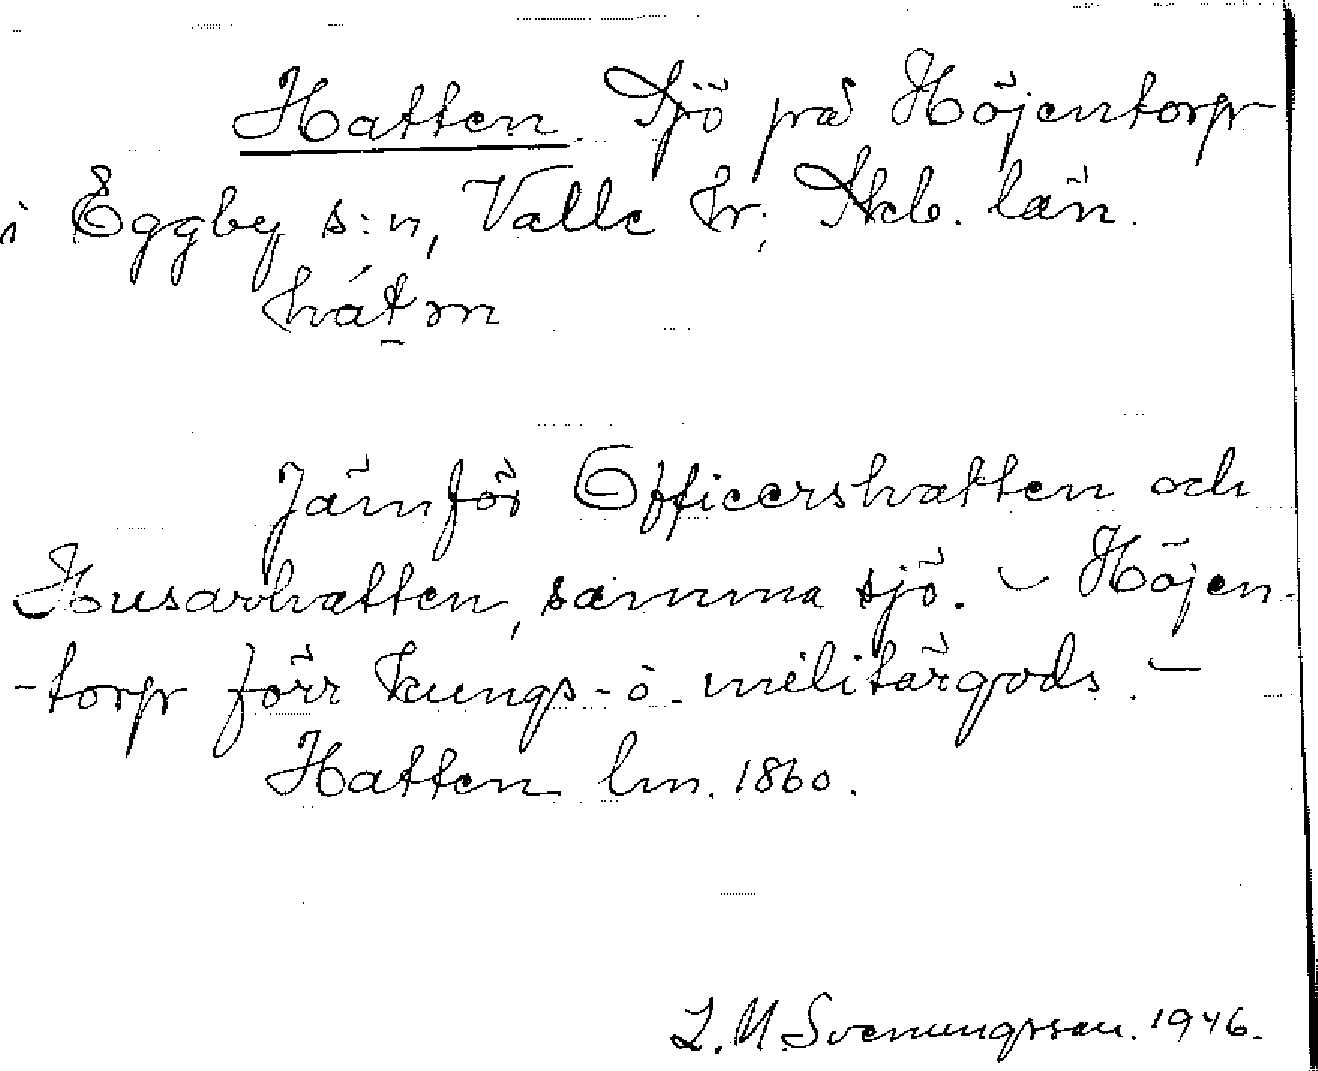 Hatten. Sjö på Höjentorp
i Eggby s:n, Valle hr, Skb. län.
hát̠n
Jämför Officershatten och
Husarhatten, samma sjö. – Höjen-
-torp förr kungs- o. militärgods. –
Hatten lm. 1860.
L. M. Svenungsson. 1946.